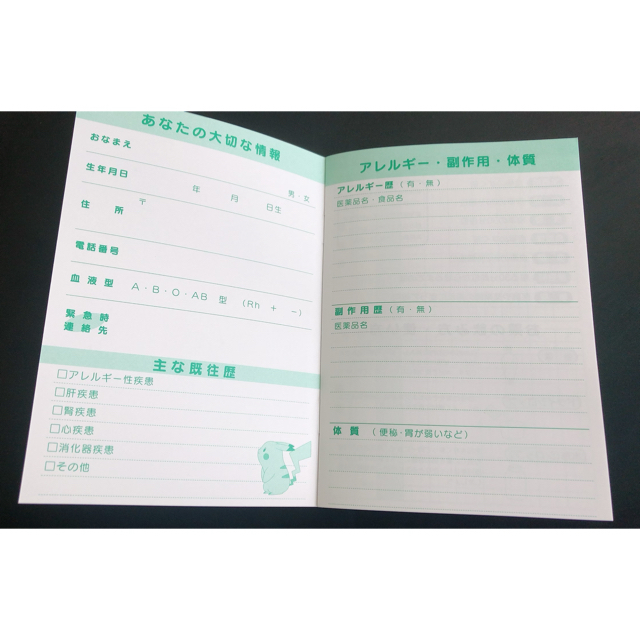 あなたの大切な情報
おなまえ
生年月日 年 月 日生 男・女
住所 〒
電話番号
血液型 A・B・O・AB 型 (Rh + −)
緊急時
連絡先
主な既往歴
□アレルギー性疾患
□肝疾患
□腎疾患
□心疾患
□消化器疾患
□その他
アレルギー・副作用・体質
アレルギー歴(有・無)
医薬品名・食品名
副作用歴(有・無)
医薬品名
体質(便秘・胃が弱いなど)